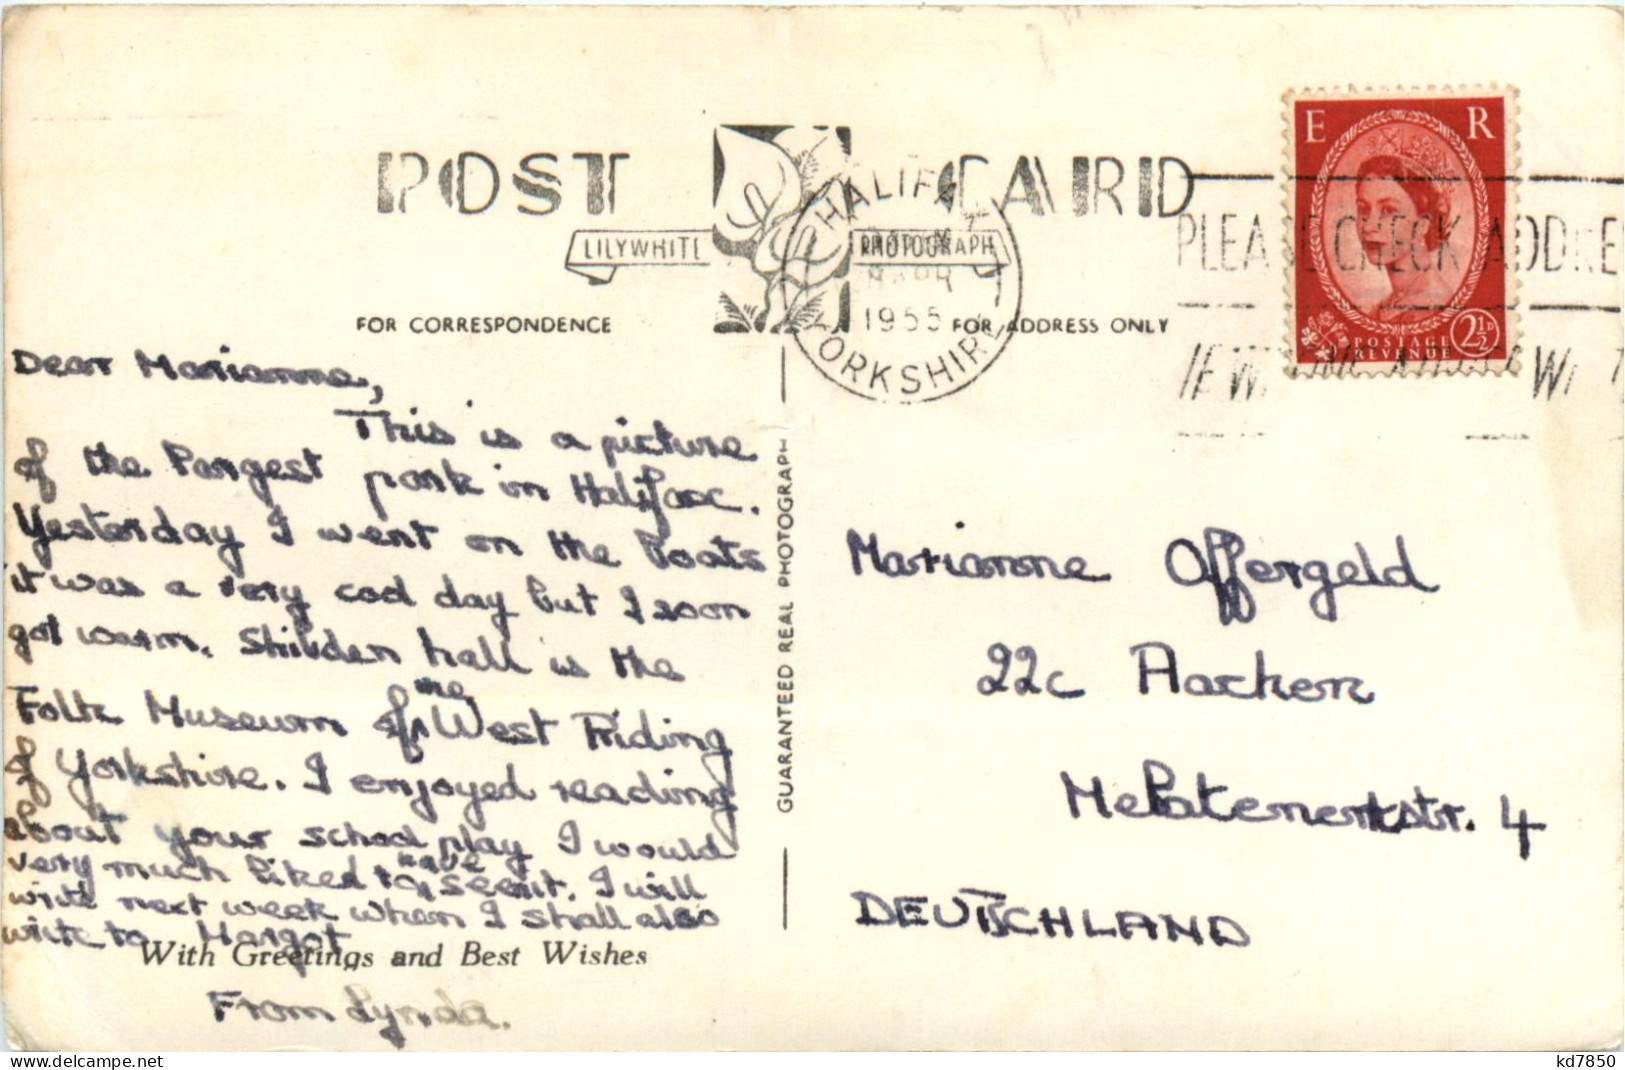 POST CARD
LILYWHITE PHOTOGRAPH
FOR CORRESPONDENCE
FOR ADDRESS ONLY
HALIFAX
APR
1955
YORKSHIRE
PLEASE CHECK ADDRE
E R
POSTAGE
REVENUE
2½D
Dear Marianne,
This is a picture
of the largest park in Halifax.
Yesterday I went on the boats
it was a very cod day but I soon
got warm. Shibden hall is the
Folk Museum of the West Riding
of Yorkshire. I enjoyed reading
about your school play I would
very much liked to have seen it. I will
write next week when I shall also
write to Margot
With Greetings and Best Wishes
From Lynda.
GUARANTEED REAL PHOTOGRAPH
Marianne Offergeld
22c Aachen
Melatenerstr. 4
DEUTSCHLAND
delcampe.net
kd7850